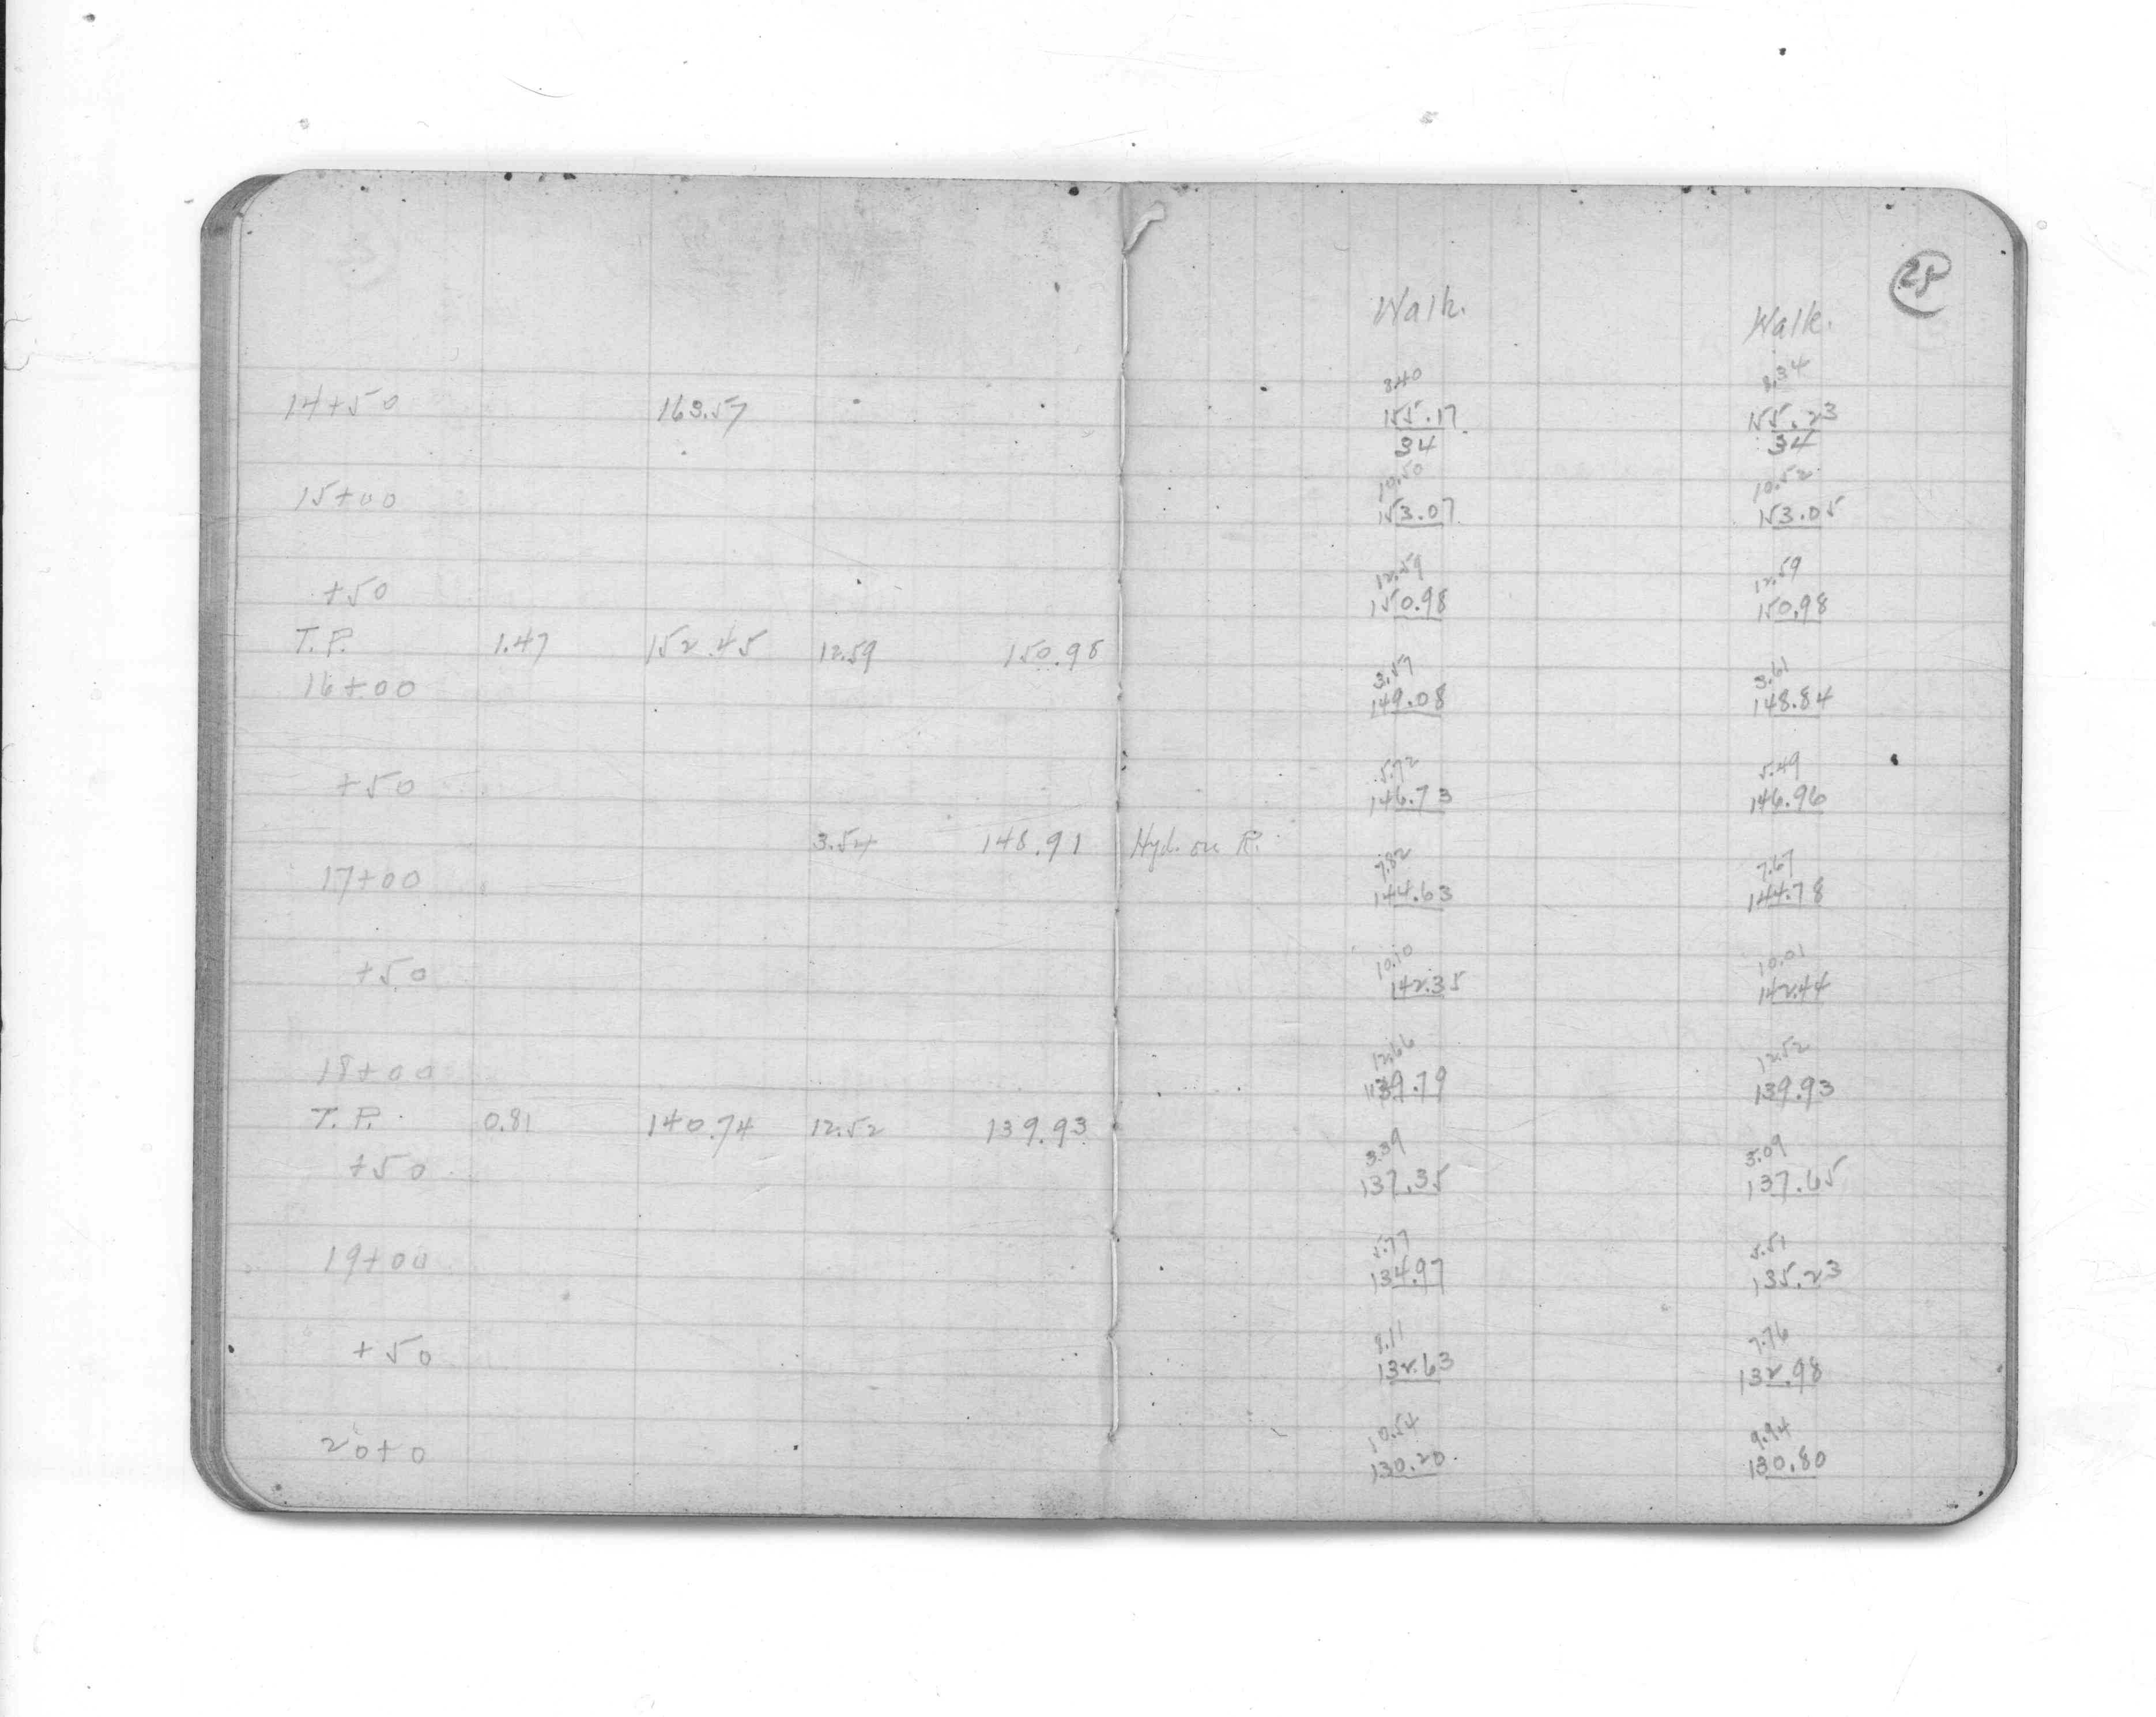 28
Walk. Walk.
8.40 8.34
14+50 163.57 155.17 155.23
34 34
10.50 10.52
15+00 153.07 153.05
12.59 12.59
+50 150.98 150.98
T.P. 1.47 152.45 12.59 150.98
3.61
16+00 149.08 148.84
5.72 5.49
+50 146.73 146.96
3.54 148.91 Hyd. on R.
7.82 7.67
17+00 144.63 144.78
10.10 10.01
+50 142.35 142.44
12.66 12.52
18+00 139.79 139.93
T.P. 0.81 140.74 12.52 139.93
3.39 3.09
+50 137.35 137.65
5.77 5.51
19+00 134.97 135.23
8.11 7.76
+50 132.63 132.98
10.54 9.94
20+0 130.20 130.80